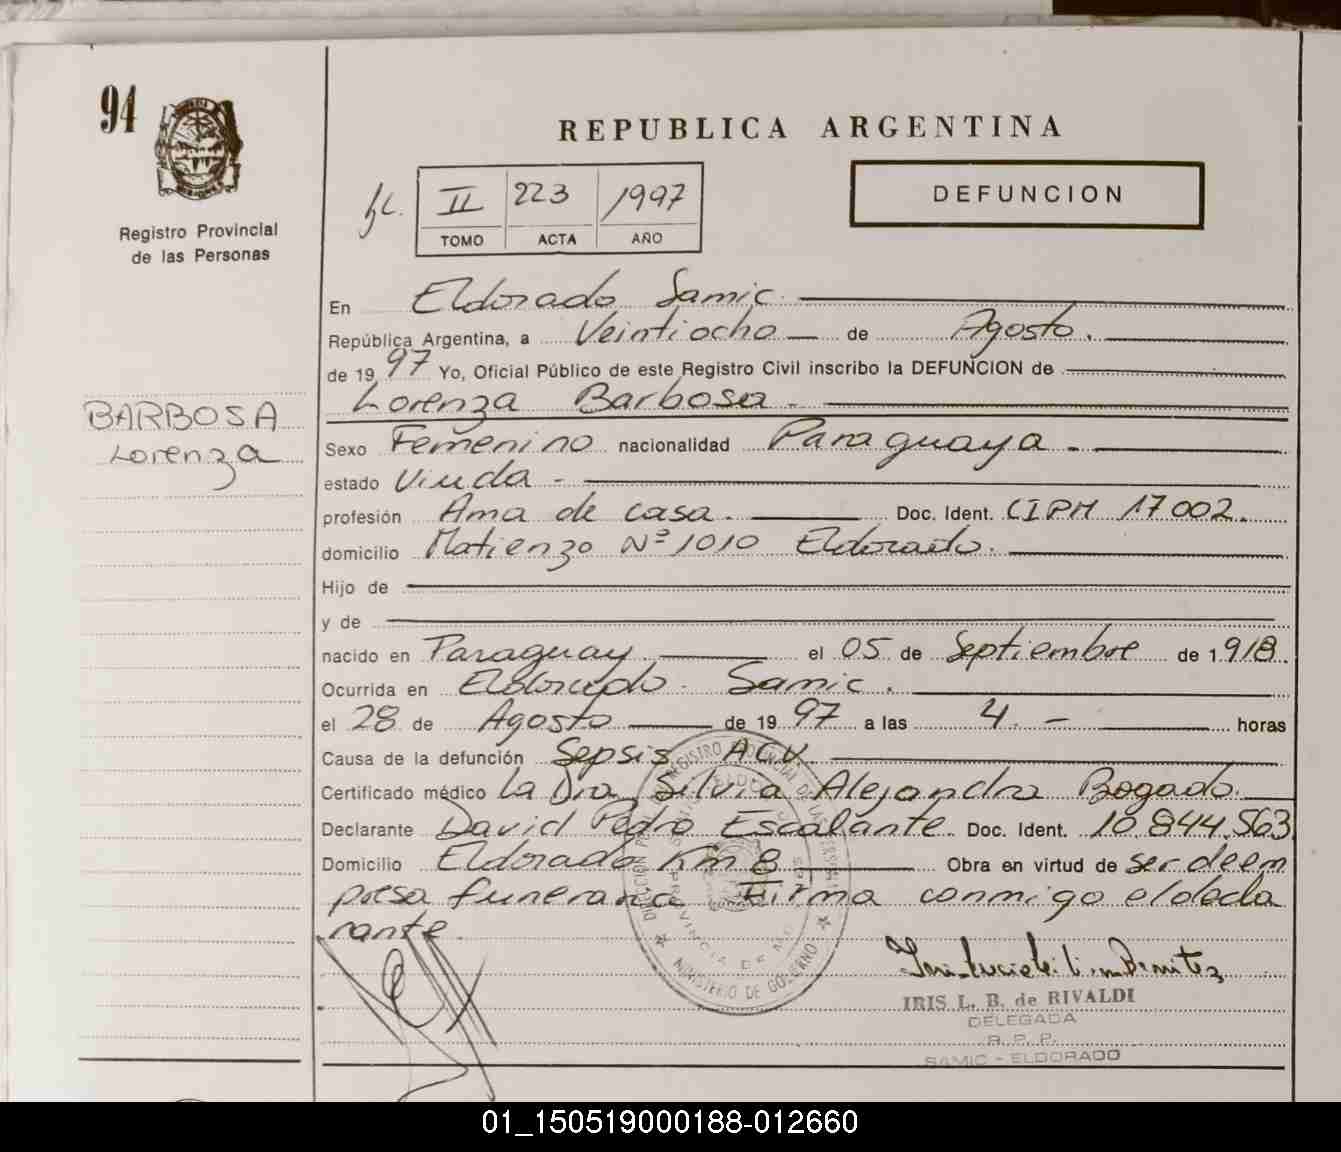 94
Registro Provincial
de las Personas
REPUBLICA ARGENTINA
II 223 1997
TOMO ACTA AÑO
DEFUNCION
En Eldorado Samic.
República Argentina, a Veintiocho de Agosto.
de 19 97 Yo, Oficial Público de este Registro Civil inscribo la DEFUNCION de
Lorenza Barbosa
BARBOSA
Lorenza
Sexo Femenino nacionalidad Paraguaya
estado Viuda
profesión Ama de casa. Doc. Ident. CIPM 17002.
domicilio Matienzo Nº 1010 Eldorado.
Hijo de
y de
nacido en Paraguay el 05 de Septiembre de 1.918.
Ocurrida en Eldorado. Samic.
el 28 de Agosto de 19 97 a las 4. horas
Causa de la defunción Sepsis ACV
Certificado médico la Dra Silvia Alejandra Bogado.
Declarante David Pedro Escalante Doc. Ident. 10.844.563
Domicilio Eldorado Km 8 Obra en virtud de ser de em
presa funeraria Firma conmigo el decla
rante
MINISTERIO DE GOBIERNO
IRIS L. B. de RIVALDI
DELEGADA
R. P. P.
SAMIC - ELDORADO
01_150519000188-012660